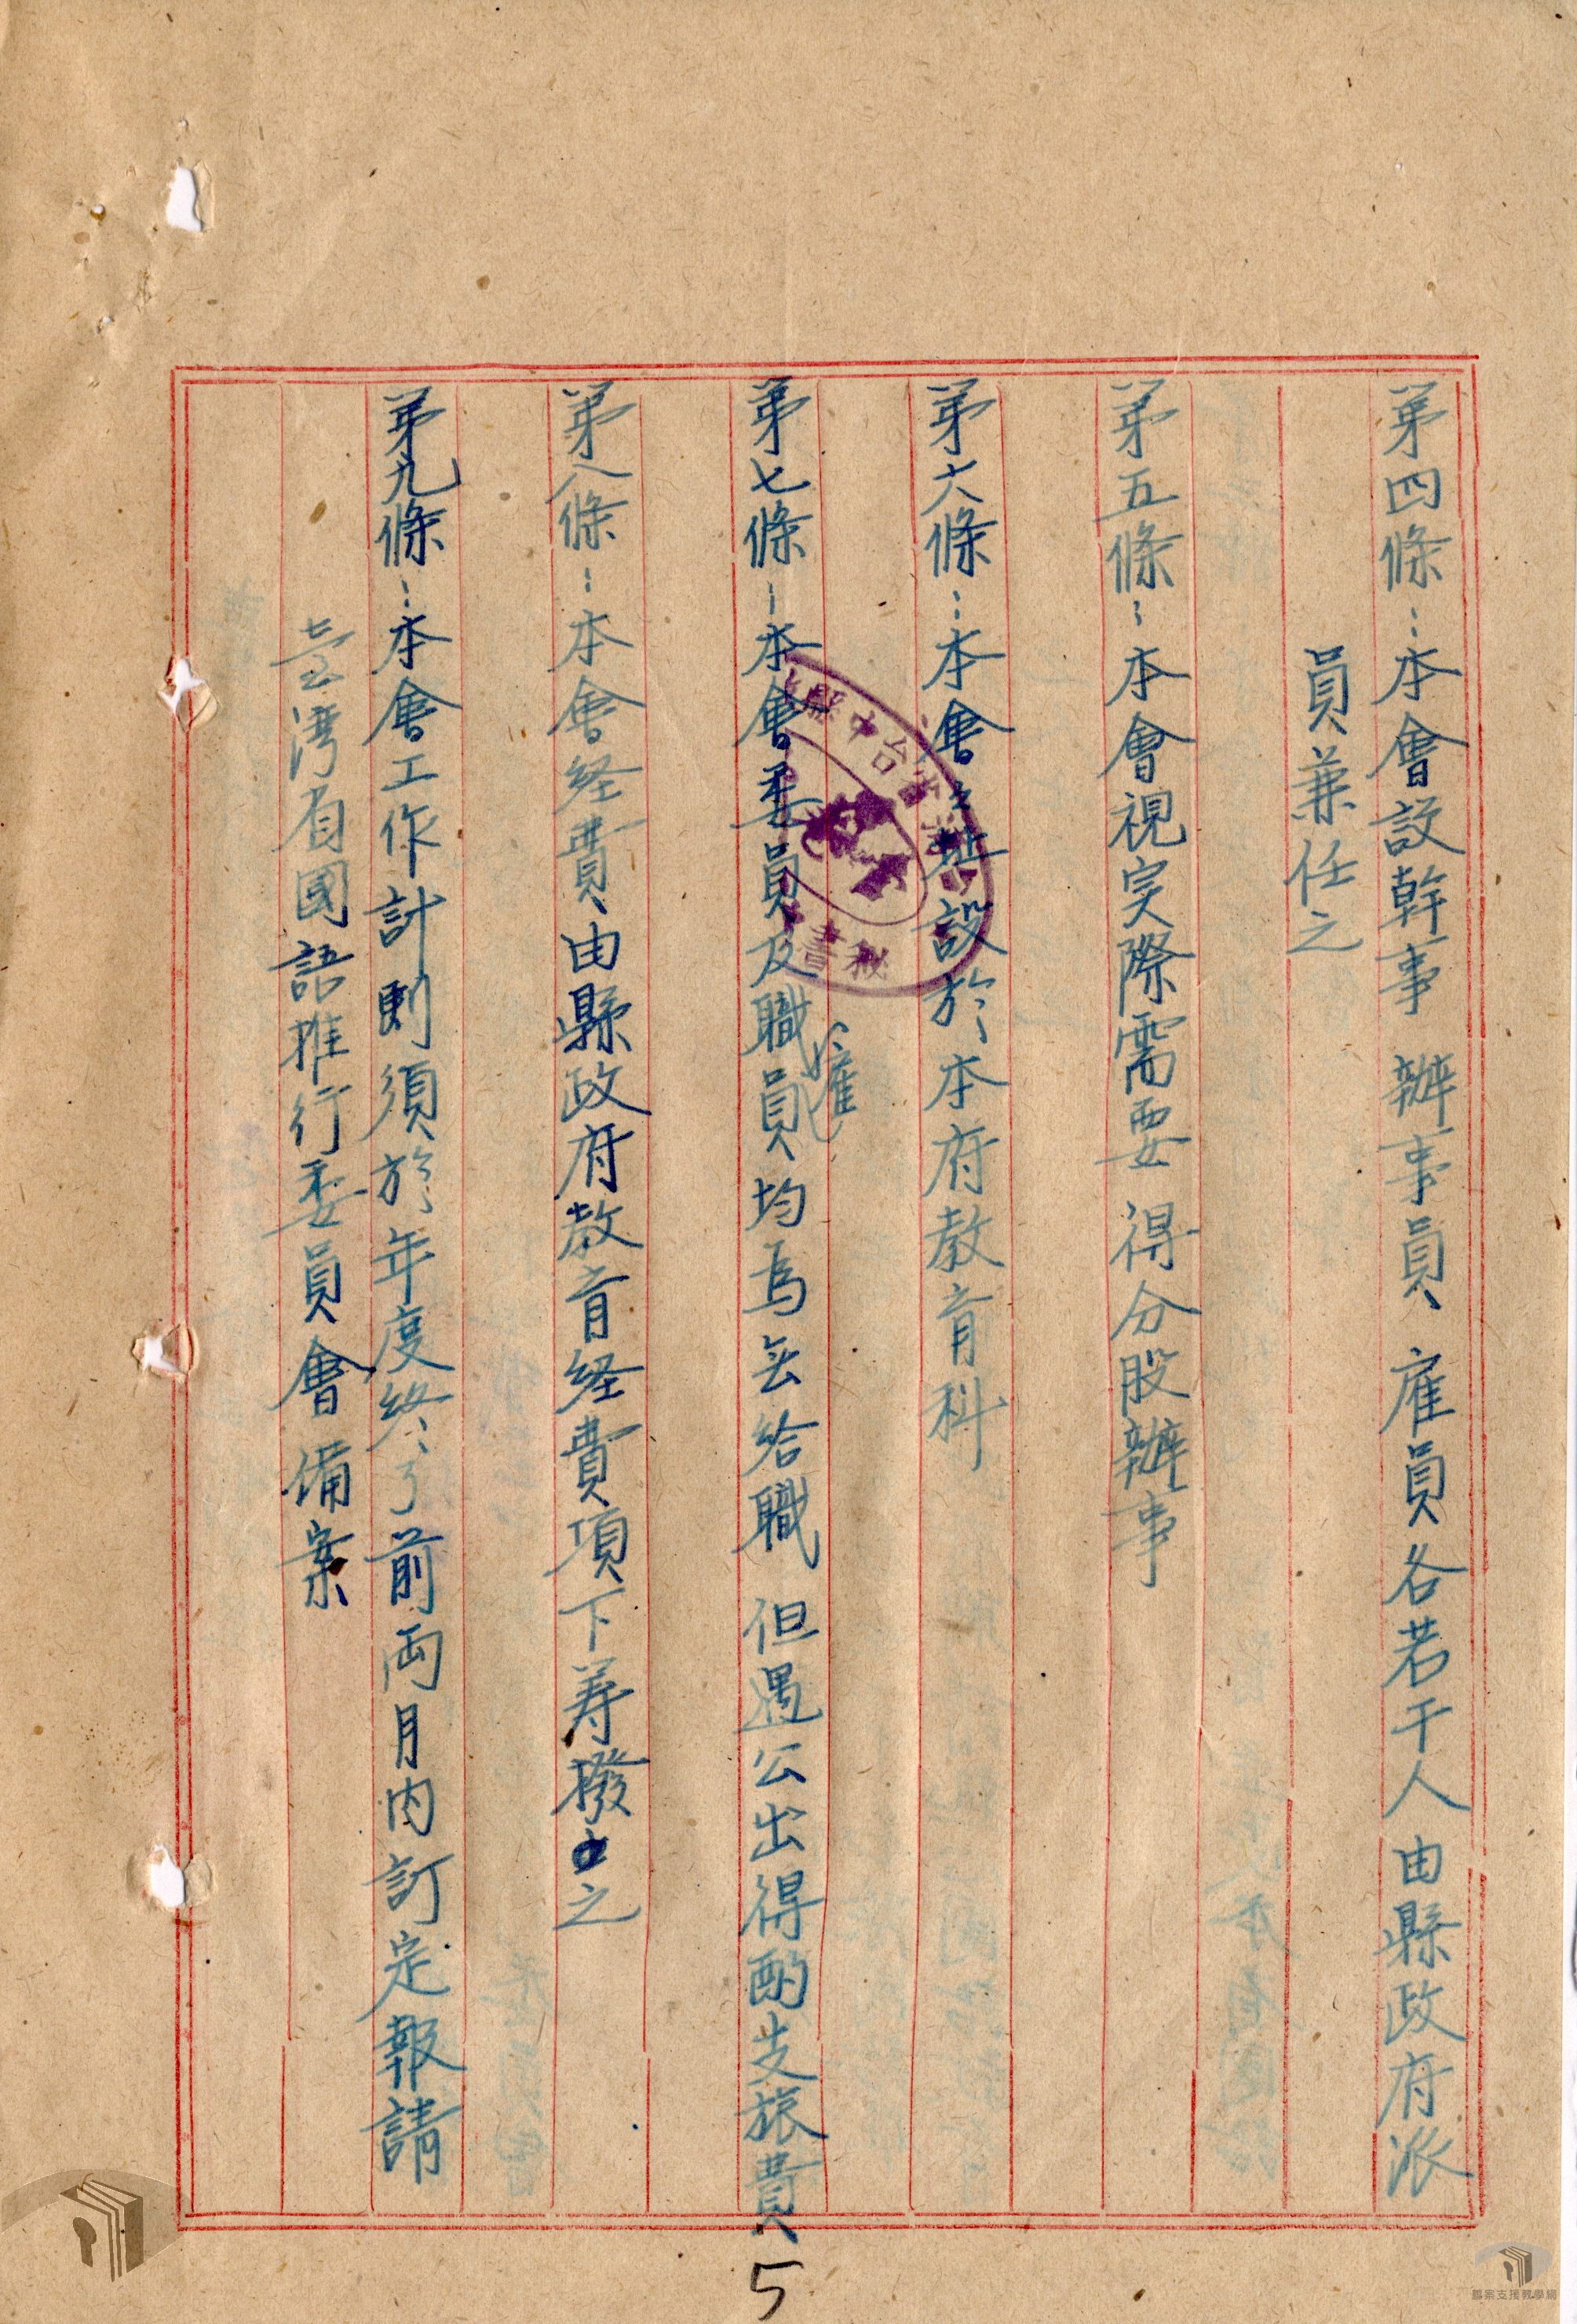 第四條：本會設幹事 辦事員 雇員各若干人由縣政府派
員兼任之
第五條：本會視实際需要 得分股辦事
第六條：本會之址設於本府教育科
第七條：本會委員及職員均為無給職 但遇公出得酌支旅費
雇
第八條：本會経費由縣政府教育経費項下筹撥之
第九條：本會工作計劃須於年度終了前両月內訂定報請
臺湾省國語推行委員會備案
台中縣
秘書
5
檔案支援教學網